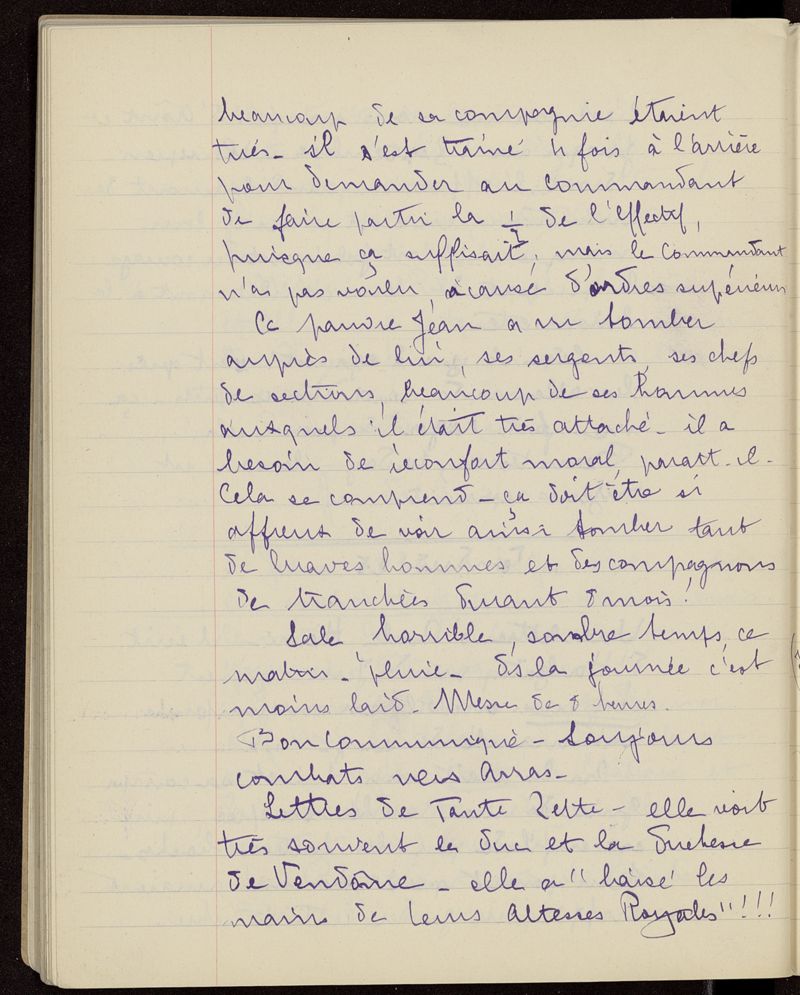 beaucoup de sa compagnie étaient
tués - il s'est traîné 4 fois à l'arrière
pour demander au commandant
de faire partir la 1/2 de l'effectif,
puisque ça suffisait, mais le Commandant
n'a pas voulu, à cause d'ordres supérieurs
Ce pauvre Jean a vu tomber
auprès de lui, ses sergents, ses chefs
de sections, beaucoup de ses hommes
auxquels il était très attaché - il a
besoin de réconfort moral, paraît-il -
Cela se comprend - ça doit être si
affreux de voir ainsi tomber tant
de braves hommes et des compagnons
de tranchées durant 8 mois !
Sale, horrible, sombre temps, ce
matin - pluie - ds la journée c'est
moins laid. Messe de 8 heures.
Bon communiqué - toujours
combats vers Arras -
Lettres de Tante Zette - elle voit
très souvent le duc et la duchesse
de Vendôme - elle a "baisé les
mains de leurs Altesses Royales" !!!